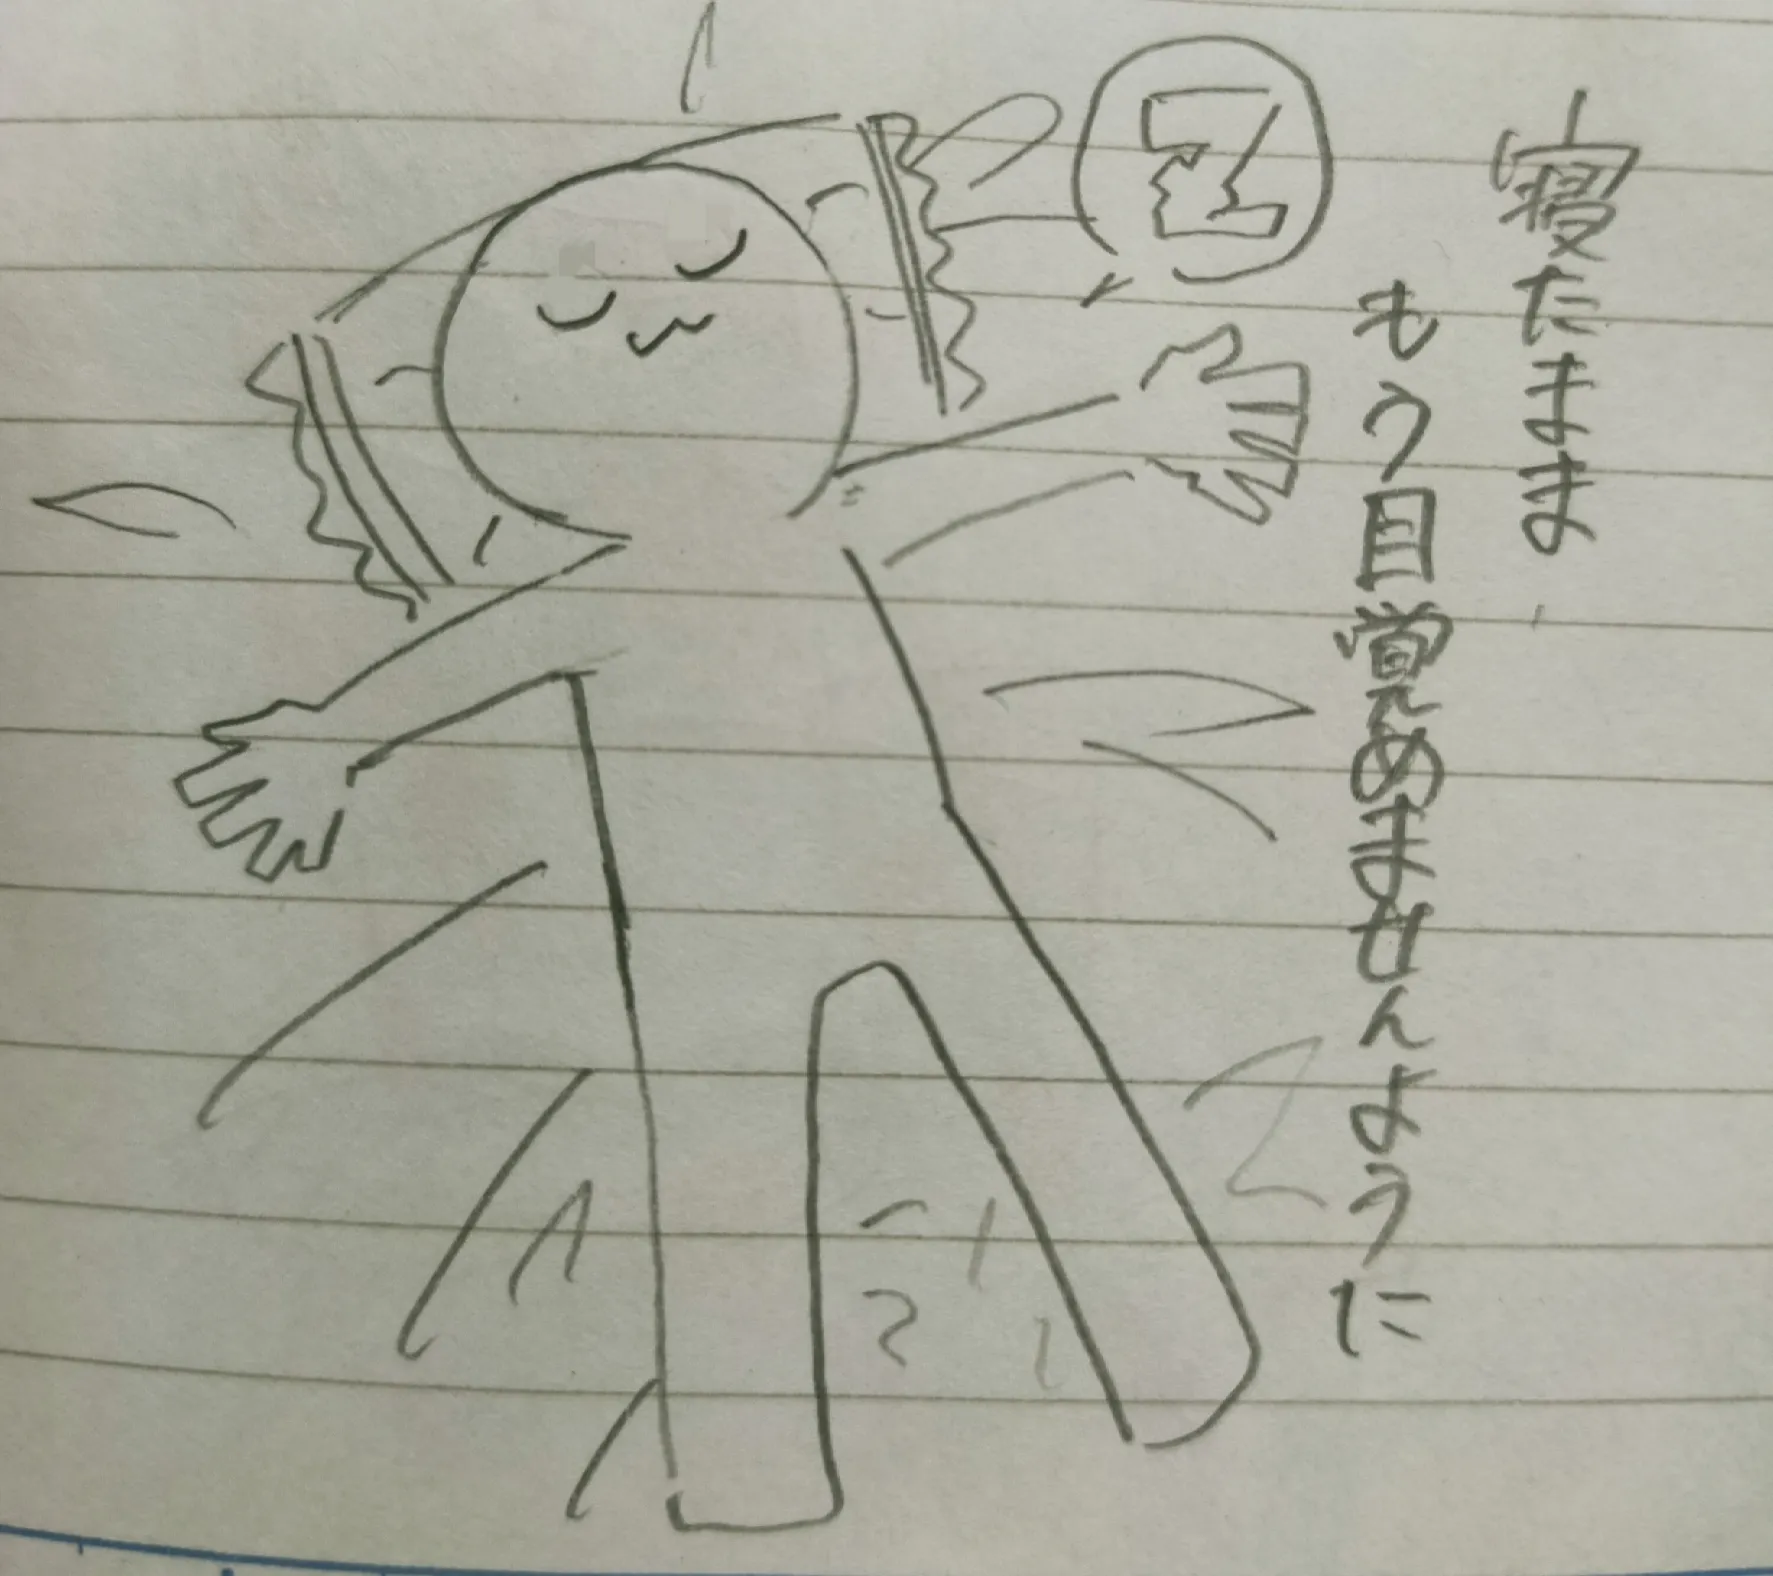 寝たまま
もう目覚めませんように
Z